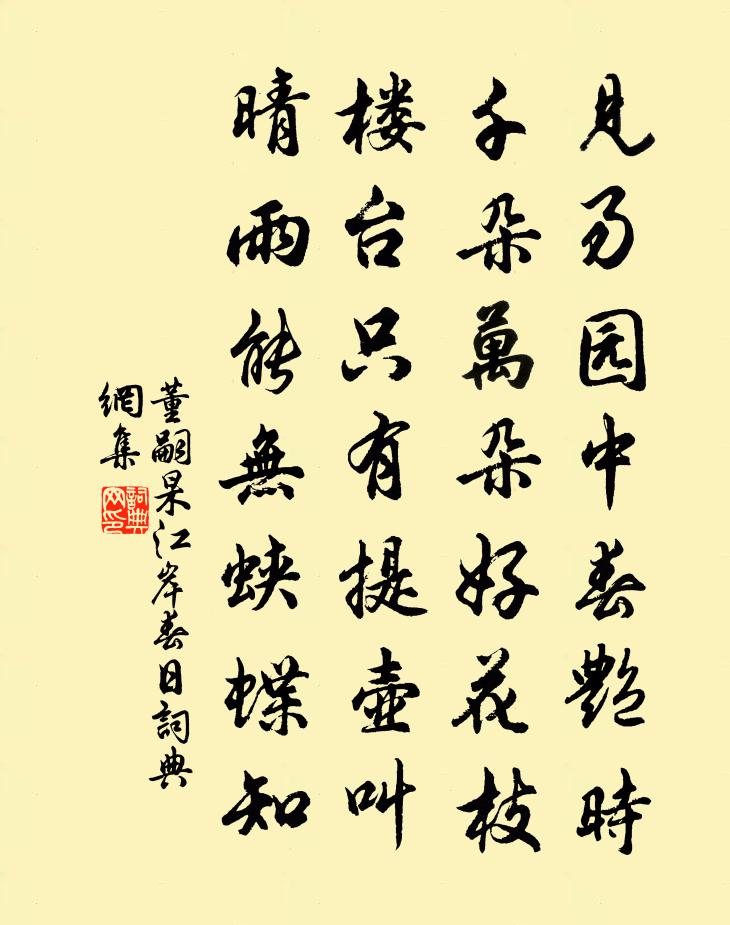 見易园中春艷時
千朵萬朵好花枝
楼台只有提壺叫
晴雨能無蛺蝶知
董嗣杲江岸春日詞典
網集
詞典網印